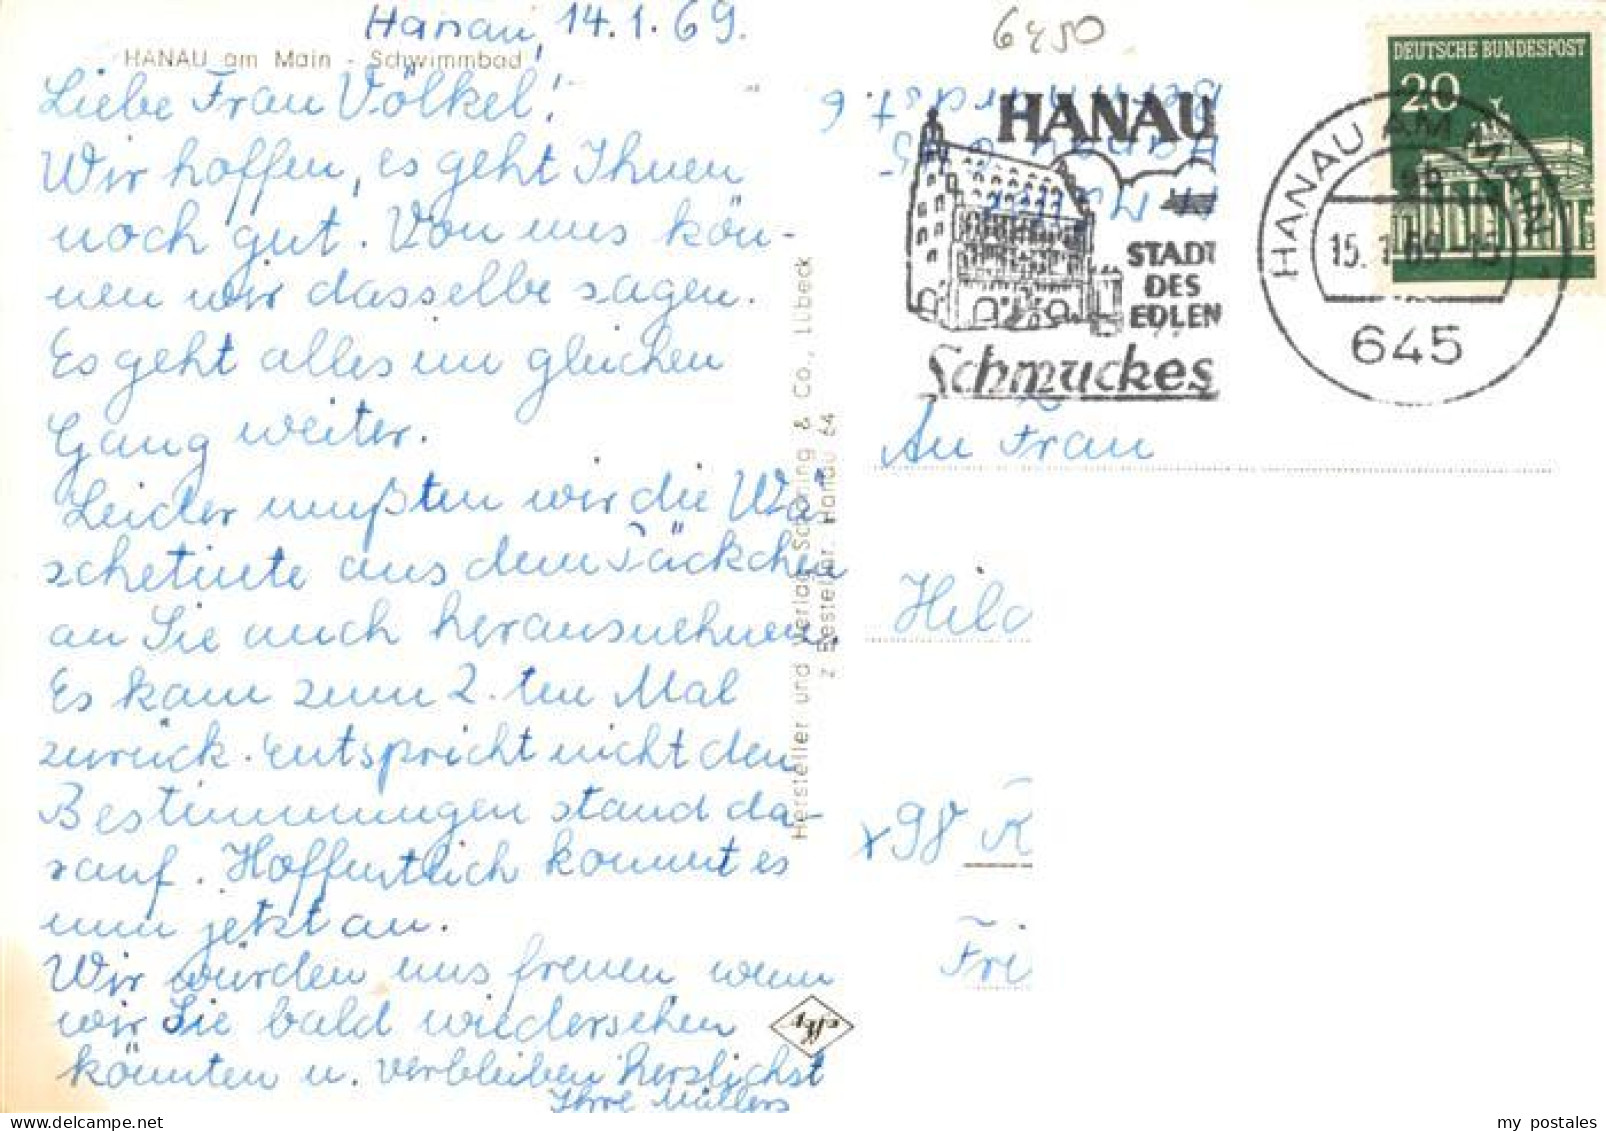 Hanau, 14.1.69.
HANAU am Main - Schwimmbad
Liebe Frau Völkel!
Wir hoffen, es geht Ihnen
noch gut. Von uns kön-
nen wir dasselbe sagen.
Es geht alles im gleichen
Gang weiter.
Leider mußten wir die Wä-
schetinte aus dem Päckchen
an Sie auch herausnehmen.
Es kam zum 2.ten Mal
zurück. Entspricht nicht den
Bestimmungen stand da-
rauf. Hoffentlich kommt es
nun jetzt an.
Wir würden uns freuen wenn
wir Sie bald wiedersehen
könnten u. verbleiben herzlichst
Ihre Müllers
Hersteller und Verlag Schöning & Co., Lübeck
z Bestellnr. Hanau 64
6450
HANAU
STADT
DES
EDLEN
Schmuckes
HANAU AM MAIN
15.1.69-15
645
DEUTSCHE BUNDESPOST
20
An Frau
Hild
x98 R
Fri
my postales